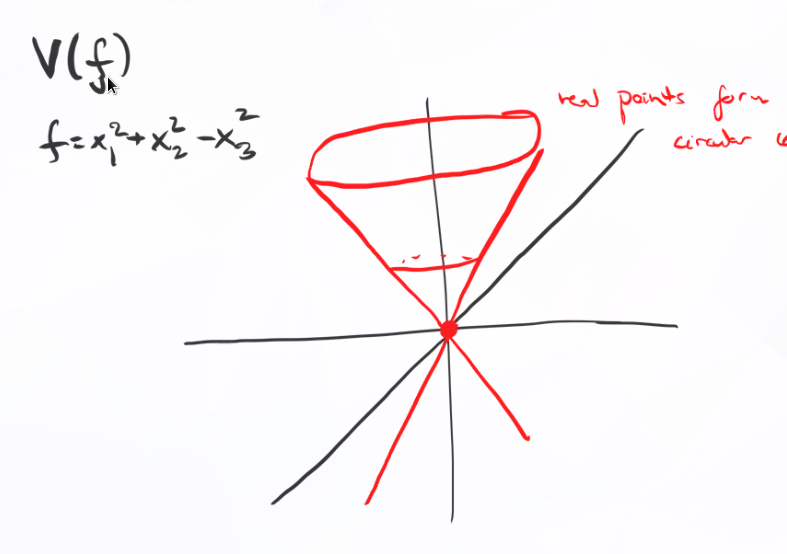 V(f)
f = x₁² + x₂² - x₃²
real points form
circular